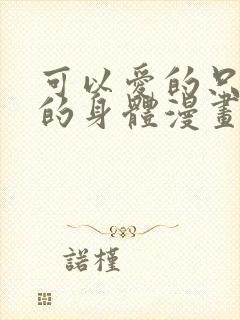 可以愛的只
的身體漫畫
諾槿